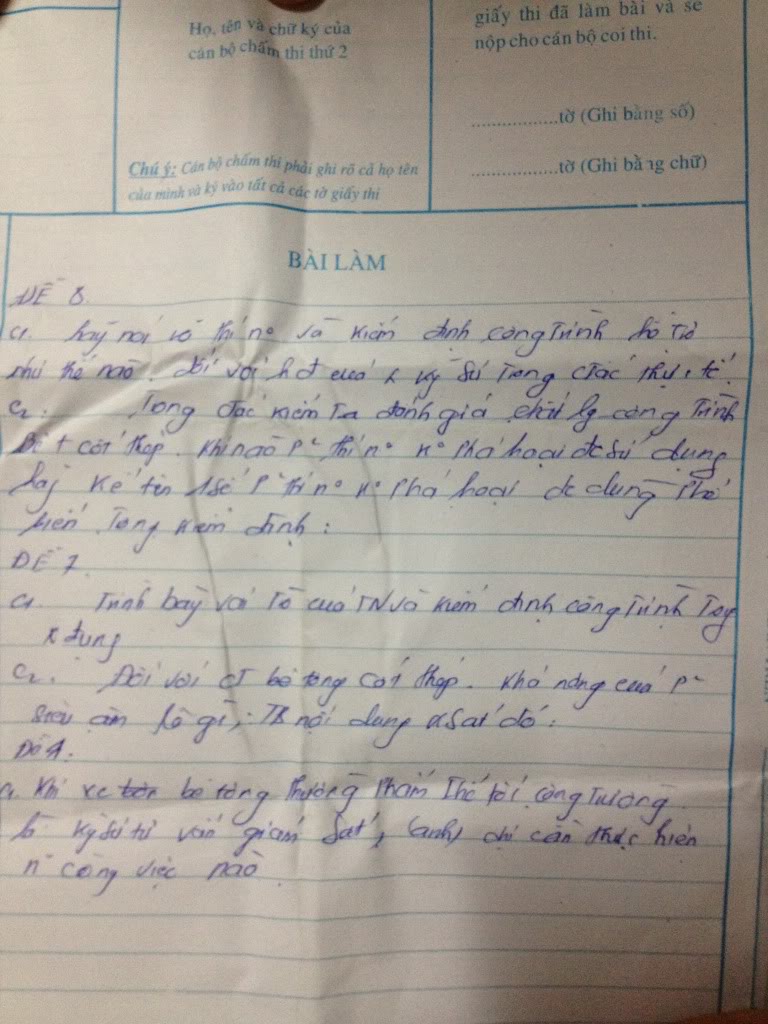 Họ, tên và chữ ký của
cán bộ chấm thi thứ 2
Chú ý: Cán bộ chấm thi phải ghi rõ cả họ tên
của mình và ký vào tất cả các tờ giấy thi
giấy thi đã làm bài và sẽ
nộp cho cán bộ coi thi.
..................tờ (Ghi bằng số)
..................tờ (Ghi bằng chữ)
BÀI LÀM
ĐỀ 8.
C1. hãy nói về thí no và kiểm định công trình
như thế nào. đối với hđ của kỹ sư trong thực tế.
C2. Trong đánh giá chất lg công trình
Bê t cốt thép. Khi nào p2 thí no ko phá hoại đc sử dụng
hãy kể tên 1 số p2 thí no ko phá hoại đc dùng phổ
biến trong kiểm định:
ĐỀ 7.
C1. Trình bày vai trò của TN và kiểm định công trình Trog
x dựng
C2. Đối với CT bê tông cốt thép. Khả năng của p2
siêu âm là gì, TB nội dung ksat đó:
Đề 4.
C1. Khi xe bê tông thương phẩm tới công trường
là kỹ sư tư vấn giám sát, (anh) chị cần thực hiện
n công việc nào